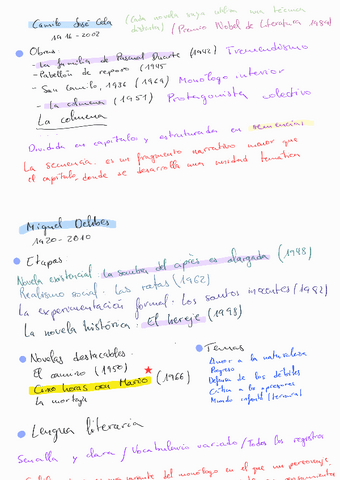 Camilo José Cela (Cada novela suya utiliza una técnica
1916-2002 distinta) / Premio Nobel de Literatura 1989
Obras
- La familia de Pascual Duarte (1942) Tremendismo
- Pabellón de reposo (1945
- San Camilo, 1936 (1969) Monólogo interior
- La colmena (1951) Protagonista colectivo
La colmena
Dividida en capítulos y estructurada en secuencias
La secuencia es un fragmento narrativo menor que
el capítulo, donde se desarrolla una unidad temática
Miguel Delibes
1920-2010
Etapas
Novela existencial: La sombra del ciprés es alargada (1948)
Realismo social. Las ratas (1962)
La experimentación formal. Los santos inocentes (1982)
La novela histórica. El hereje (1998)
Novelas destacables.
El camino (1950)
Cinco horas con Mario (1966)
La mortaja
Temas
Amor a la naturaleza
Progreso
Defensa de los débiles
Crítica a los opresores
Mundo infantil
Lengua literaria
Sencilla y clara / Vocabulario variado / Todos los registros
variante del monólogo en el que un personaje